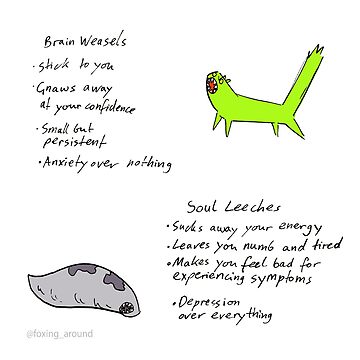 Brain Weasels
• Stick to you
• Gnaws away
at your confidence
• Small but
persistent
• Anxiety over nothing
Soul Leeches
• Sucks away your energy
• Leaves you numb and tired
• Makes you feel bad for
experiencing symptoms
• Depression
over everything
@foxing_around